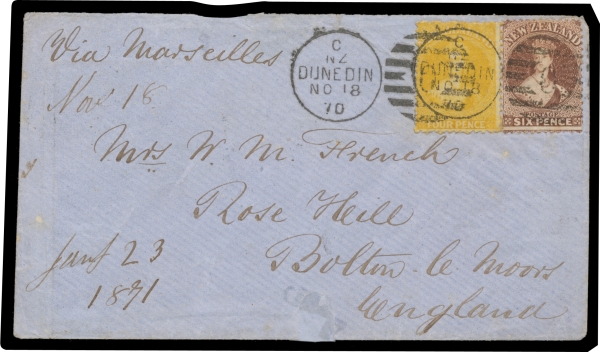 Via Marseilles
Nov 18
C
NZ
DUNEDIN
NO 18
70
C
NZ
DUNEDIN
NO 18
70
FOUR PENCE
NEW ZEALAND
POSTAGE
SIX PENCE
Mrs W. M. French
Rose Hill
Bolton le Moors
England
Jany 23
1871